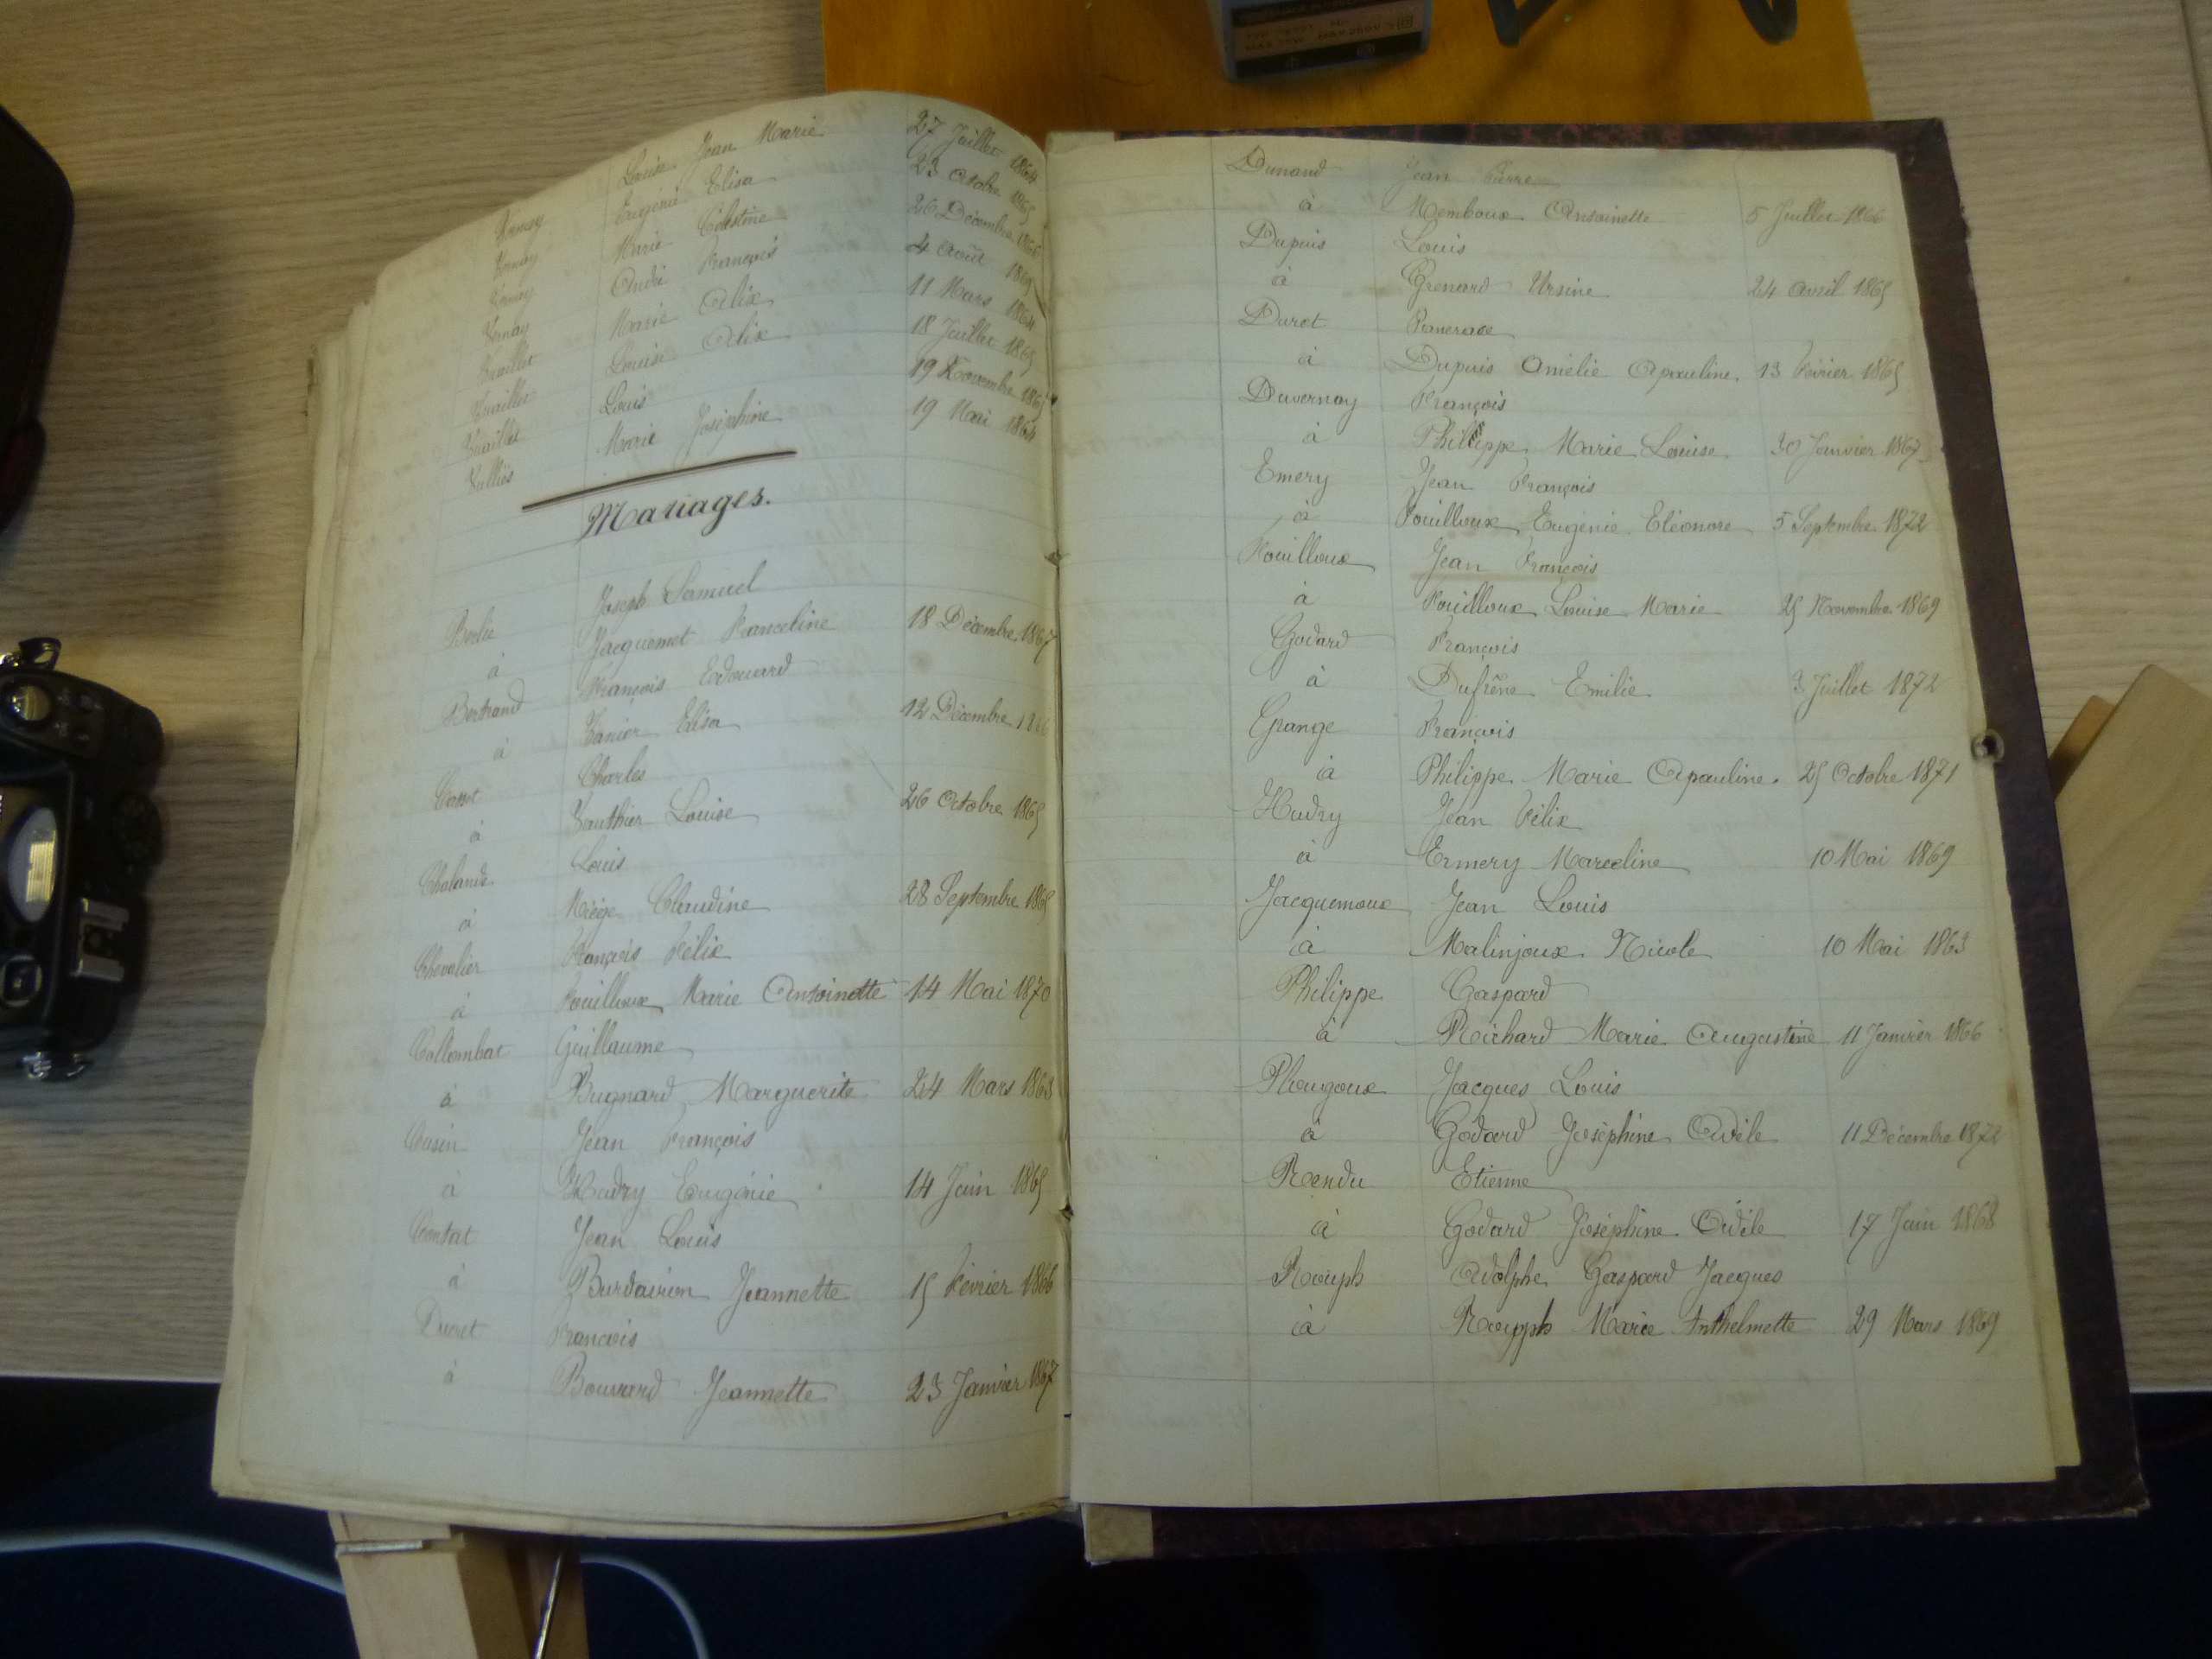 Louise Jean Marie 27 Juillet 1864
Eugénie Elisa 23 Octobre 1865
Marie Célestine 26 Décembre
André François 4 Août
Marie Alix 11 Mars 1864
Louise Alix 18 Juillet 1865
Louis 19 Novembre
Marie Joséphine 19 Mai 1864
Mariages.
Joseph Samuel
à Jacquemet Franceline 18 Décembre 1867
Bertrand François Edouard
à Elisa 12 Décembre
Charles
à Vauthier Louise 26 Octobre 1865
Louis
à Claudine 28 Septembre
Chevalier François Félix
à Fouilloux Marie Antoinette 14 Mai 1870
Collombat Guillaume
à Bugnard Marguerite 24 Mars 1863
Jean François
à Hudry Eugénie 14 Juin 1865
Contat Jean Louis
à Jeannette 15 Février 1866
Ducret François
à Bouvard Jeannette 23 Janvier 1867
Dunand Jean Pierre
à Antoinette 5 Juillet 1866
Dupuis Louis
à Grenard Ursine 24 Avril 1865
Duret
à Dupuis Amélie Apauline 13 Février 1865
Duvernay François
à Philippe Marie Louise 30 Janvier 1867
Emery Jean François
à Fouilloux Eugénie Eléonore 5 Septembre 1872
Fouilloux Jean François
à Fouilloux Louise Marie 25 Novembre 1869
Godard François
à Dufrêne Emilie 3 Juillet 1872
Grange François
à Philippe Marie Apauline 25 Octobre 1871
Hudry Jean Félix
à Ermery Marceline 10 Mai 1869
Jacquemoux Jean Louis
à Malinjoux Nicole 10 Mai 1863
Philippe Gaspard
à Richard Marie Augustine 11 Janvier 1866
Plougoux Jacques Louis
à Godard Joséphine Adèle 11 Décembre 1872
Rendu Etienne
à Godard Joséphine Adèle 17 Juin 1868
Rouph Adolphe Gaspard Jacques
à Roupph Marie Anthelmette 29 Mars 1869